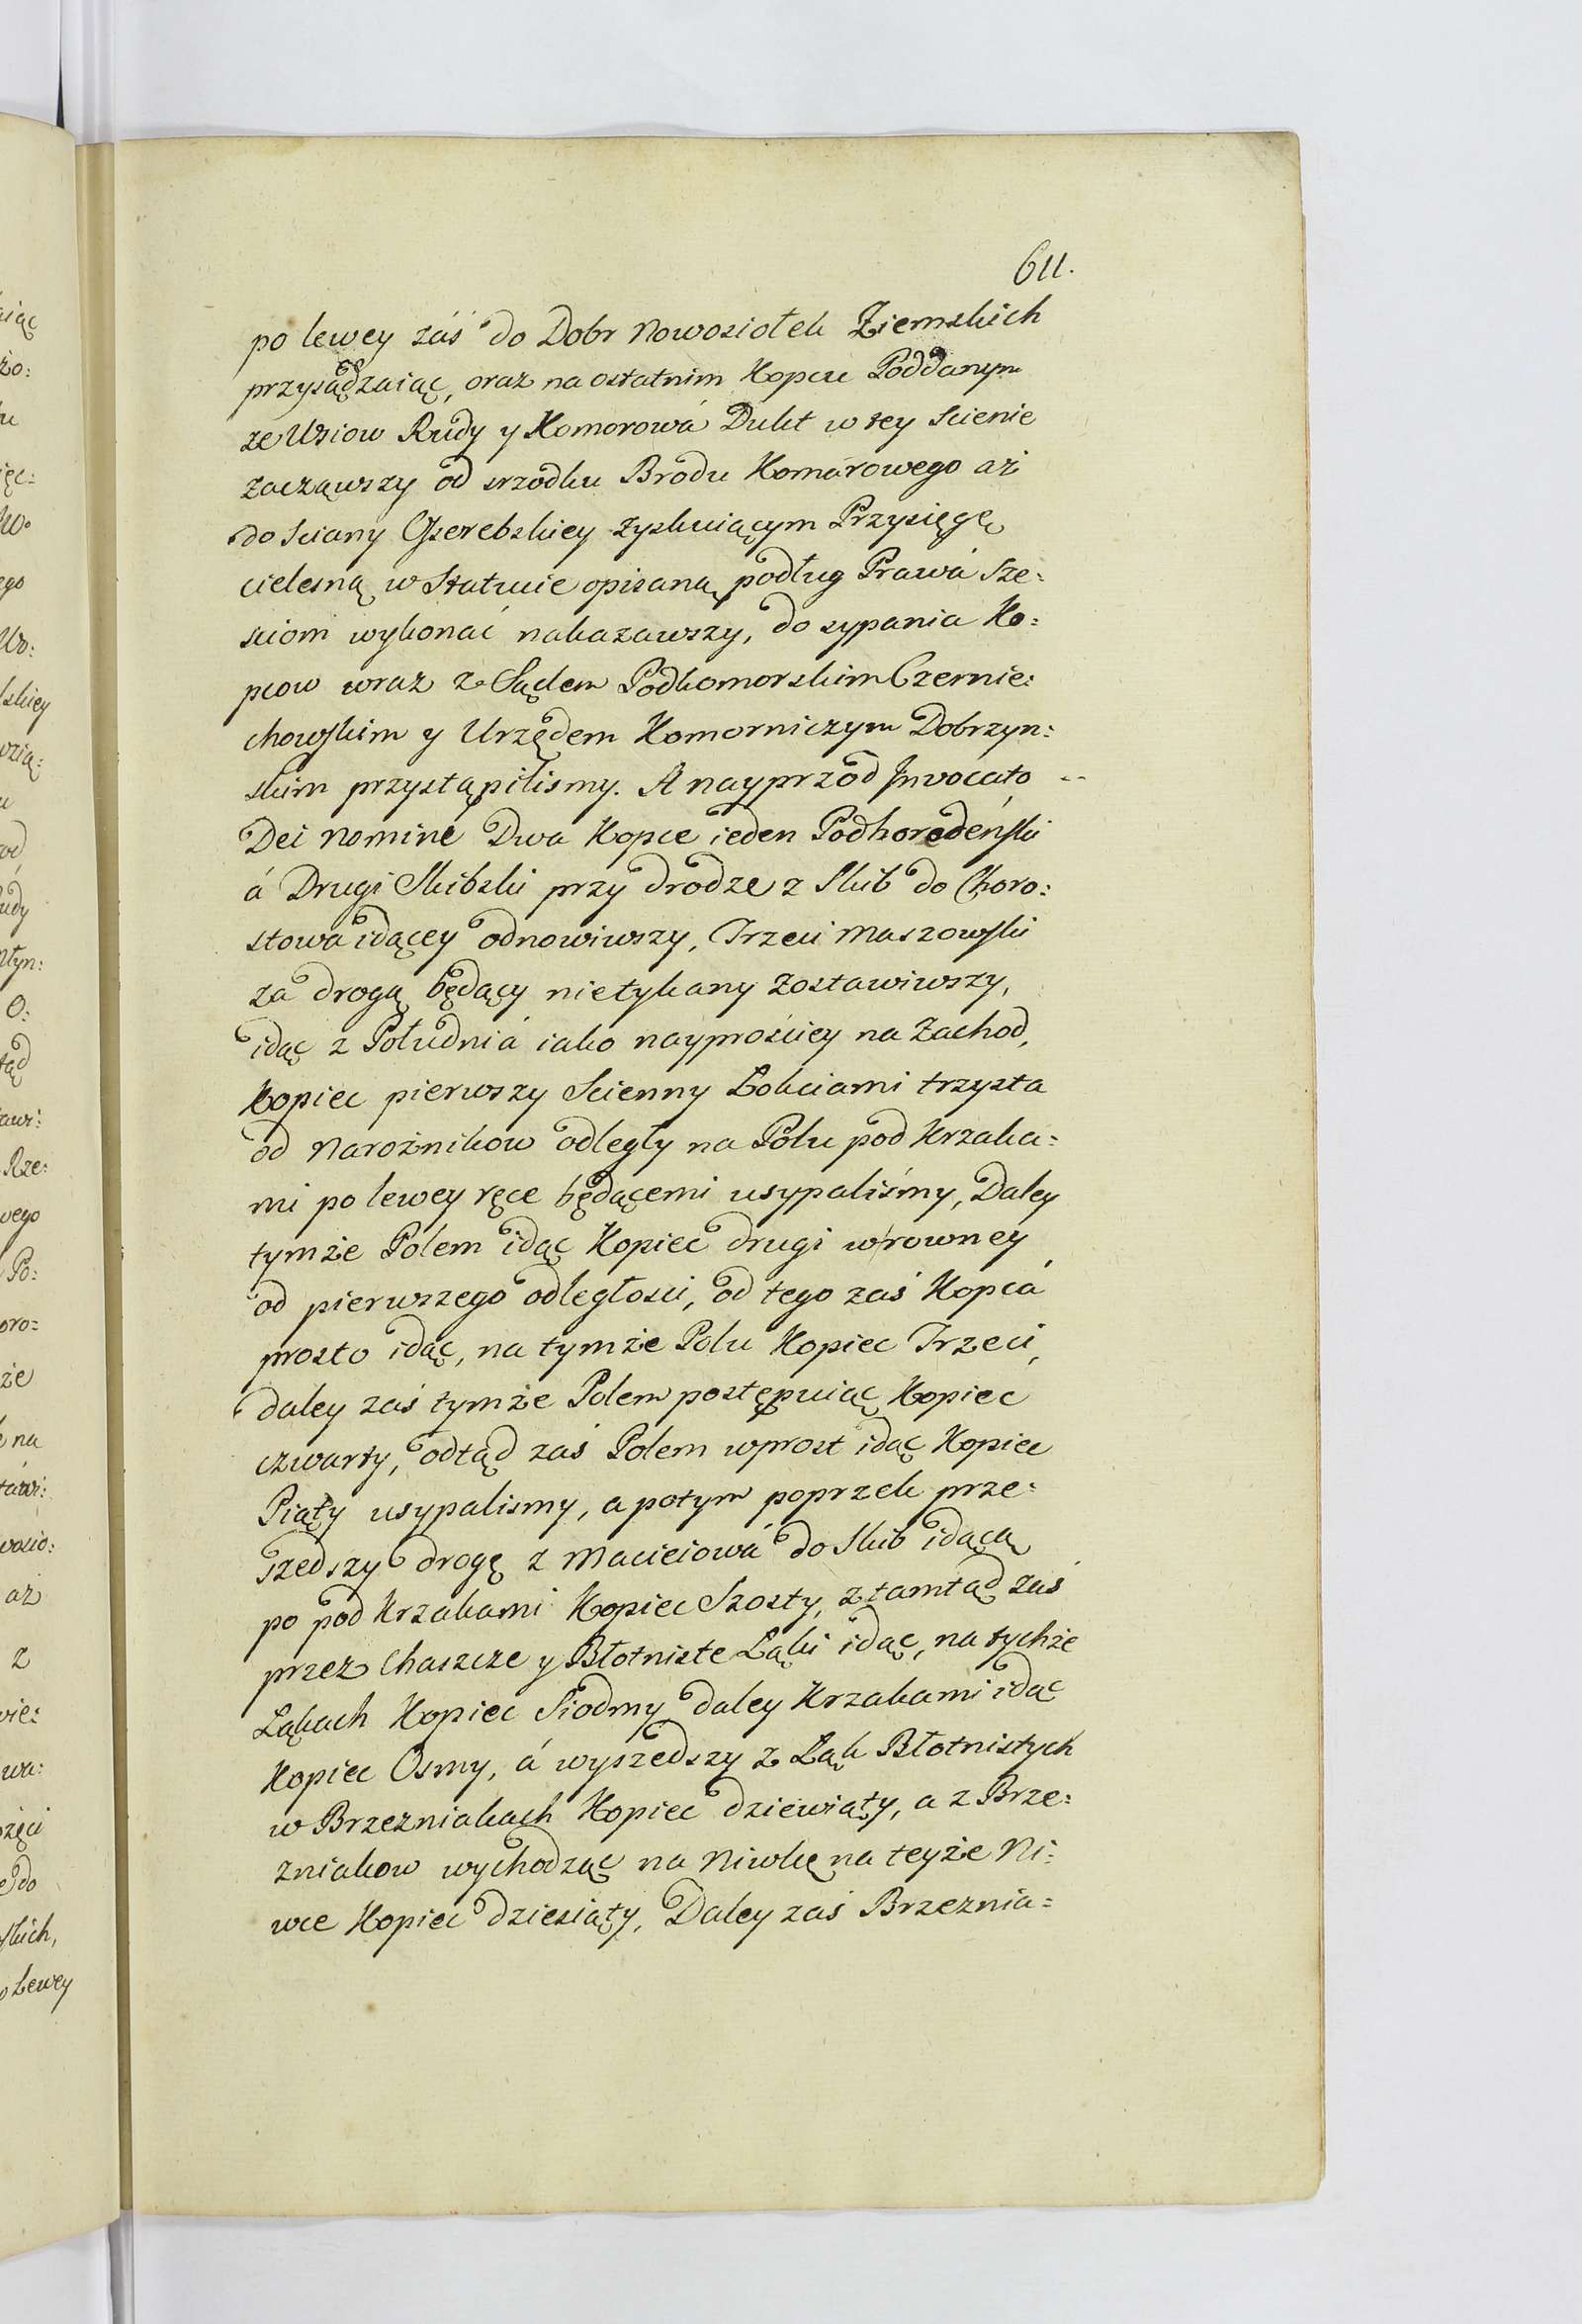 611.
po lewey záś do Dobr Nowosiołek Ziemskich
przysądzaiąc, oraz na ostatnim Kopcu Poddanym
ze Wsiow Rudy y Komorowá Dukt w tey Scienie
zacząwszy od srzodku Brodu Komárowego aż
do Sciany Ozerebskiey zyskuiącym Przysięgę
cielesną w Statucie opisaną podług Prawá Sze:
sciom wykonać nakazawszy, do sypania Ko:
pcow wraz z Sądem Podkomorskim Czernie:
chowskim y Urzędem Komorniczym Dobrzyn:
skim przystąpilismy. A nayprzod Jnvocato
Dei Nomine Dwa Kopce ieden Podhorodeński
á Drugi Skibski przy drodze z Skib do Choro:
stowá idącey odnowiwszy, Trzeci Maszowski
za drogą będący nietykany zostawiwszy,
idąc z Południá iako nayprościey na Zachod,
Kopiec pierwszy Scienny Łokciami trzysta
od Narożnikow odległy na Polu pod Krzaka:
mi po lewey ręce będącemi usypaliśmy, Daley
tymże Polem idąc Kopiec drugi w rowney
od pierwszego odległosci, od tego zaś Kopcá
prosto idąc, na tymże Polu Kopiec Trzeci,
daley zaś tymże Polem postępuiąc Kopiec
czwarty, odtąd zaś Polem wprost idąc Kopiec
Piąty usypalismy, a potym poprzek prze:
szedszy drogę z Macieiowá do Skib idącą
po pod Krzakami Kopiec Szosty, z tamtąd zaś
przez Chaszcze y Błotniste Łąki idąc, na tychże
Łąkach Kopiec Siodmy daley Krzakami idąc
Kopiec Osmy, á wyszedszy z Łąk Błotnistych
w Brzezniakach Kopiec dziewiąty, a z Brze:
zniakow wychodząc na Niwkę na teyże Ni:
wce Kopiec dziesiąty, Daley zaś Brzeznia: